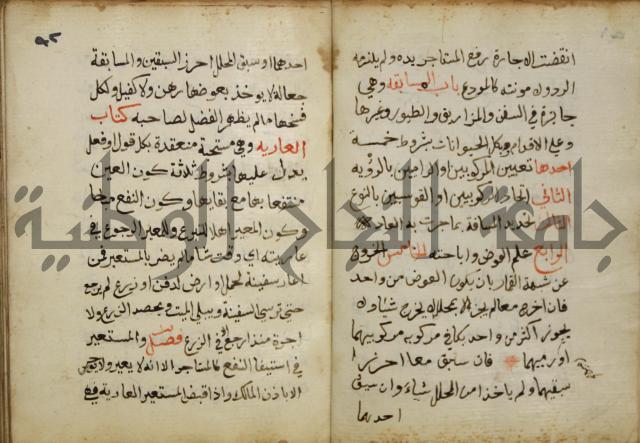 انقضت الاجارة رفع المستاجر يده ولم يلزمه
الرد ولا مونته كالمودع باب المسابقه وهي
جائزة في السفن والمزاريق والطيور وغيرها
وعلى الاقدام وبكل الحيوانات بشروط خمسة
احدها تعيين المركوبين او الراميين بالرؤيه
الثاني اتحاد المركوبين او القوسين بالنوع
الثالث تحديد المسافة بما جرت به العادة
الرابع علم العوض واباحته الخامس الخروج
عن شبهة القمار بان يكون العوض من واحد
فان اخرجا معا لم يجز الا بمحلل لا يخرج شيا ولا
يجوز اكثر من واحد يكافي مركوبه مركوبيهما
او رميهما فان سبقا معا احرزا
سبقيهما ولم ياخذا من المحلل شيا وان سبق
احدهما
احدهما او سبق المحلل احرز السبقين والمسابقة
جعالة لا يوخذ بعوضها رهن ولا كفيل ولكل
فسخها ما لم يظهر الفضل لصاحبه كتاب
العاريه وهي مستحبة منعقدة بكل قول او فعل
يدل عليها بشروط ثلاثة كون العين
منتفعا بها مع بقايها وكون النفع مباحا
وكون المعير اهلا للتبرع وللمعير الرجوع في
عاريته اي وقت شا ما لم يضر بالمستعير فمن
اعار سفينة لحمل او ارض لدفن او زرع لم يرجع
حتى ترسي السفينة ويبلي الميت ويحصد الزرع ولا
اجرة منذ رجع الا في الزرع فصل والمستعير
في استيفا النفع كالمستاجر الا انه لا يعير ولا يوجر
الا باذن المالك واذا قبض المستعير العارية فهي
جامعة النجاح الوطنية